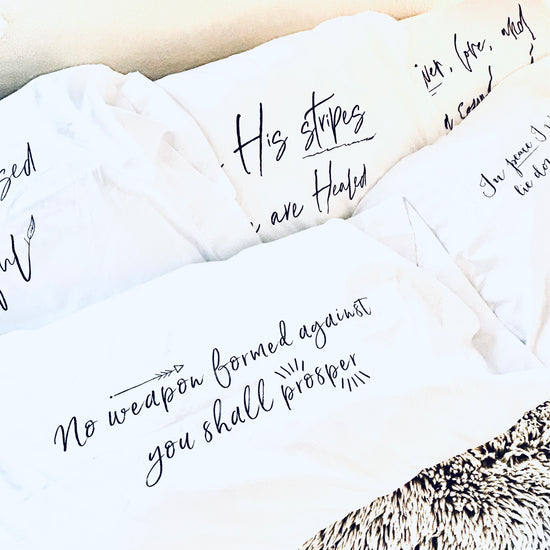 His stripes
are Healed
love, and
In peace I
lie
No weapon formed against
you shall prosper